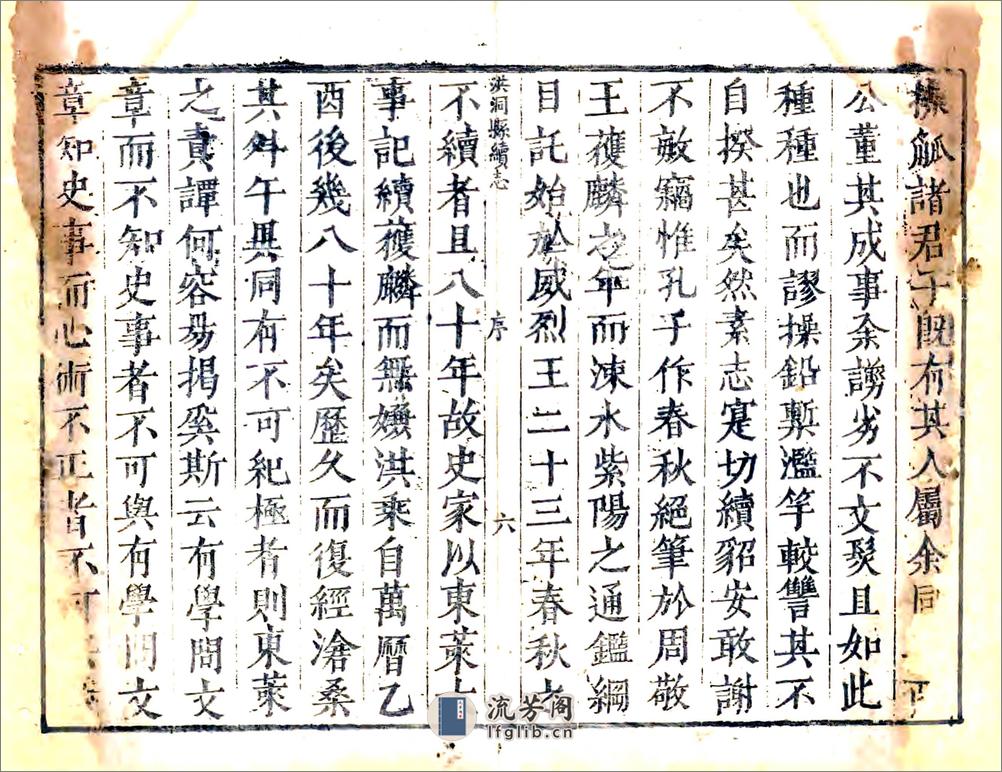 操觚諸君子既有其人屬余同
公董其成事余謭劣不文髮且如此
種種也而謬操鉛槧濫竽較讐其不
自揆甚矣然素志寔切續貂安敢謝
不敏竊惟孔子作春秋絕筆於周敬
王獲麟之年而涑水紫陽之通鑑綱
目託始於威烈王二十三年春秋之
洪洞縣續志 序 六
不續者且八十年故史家以東萊大
事記續獲麟而無嫌洪乘自萬曆乙
酉後幾八十年矣歷久而復經滄桑
其舛午異同有不可紀極者則東萊
之責譚何容昜揭奚斯云有學問文
章而不知史事者不可與有學問文
章知史事而心術不正者不可
流芳阁
lfglib.cn